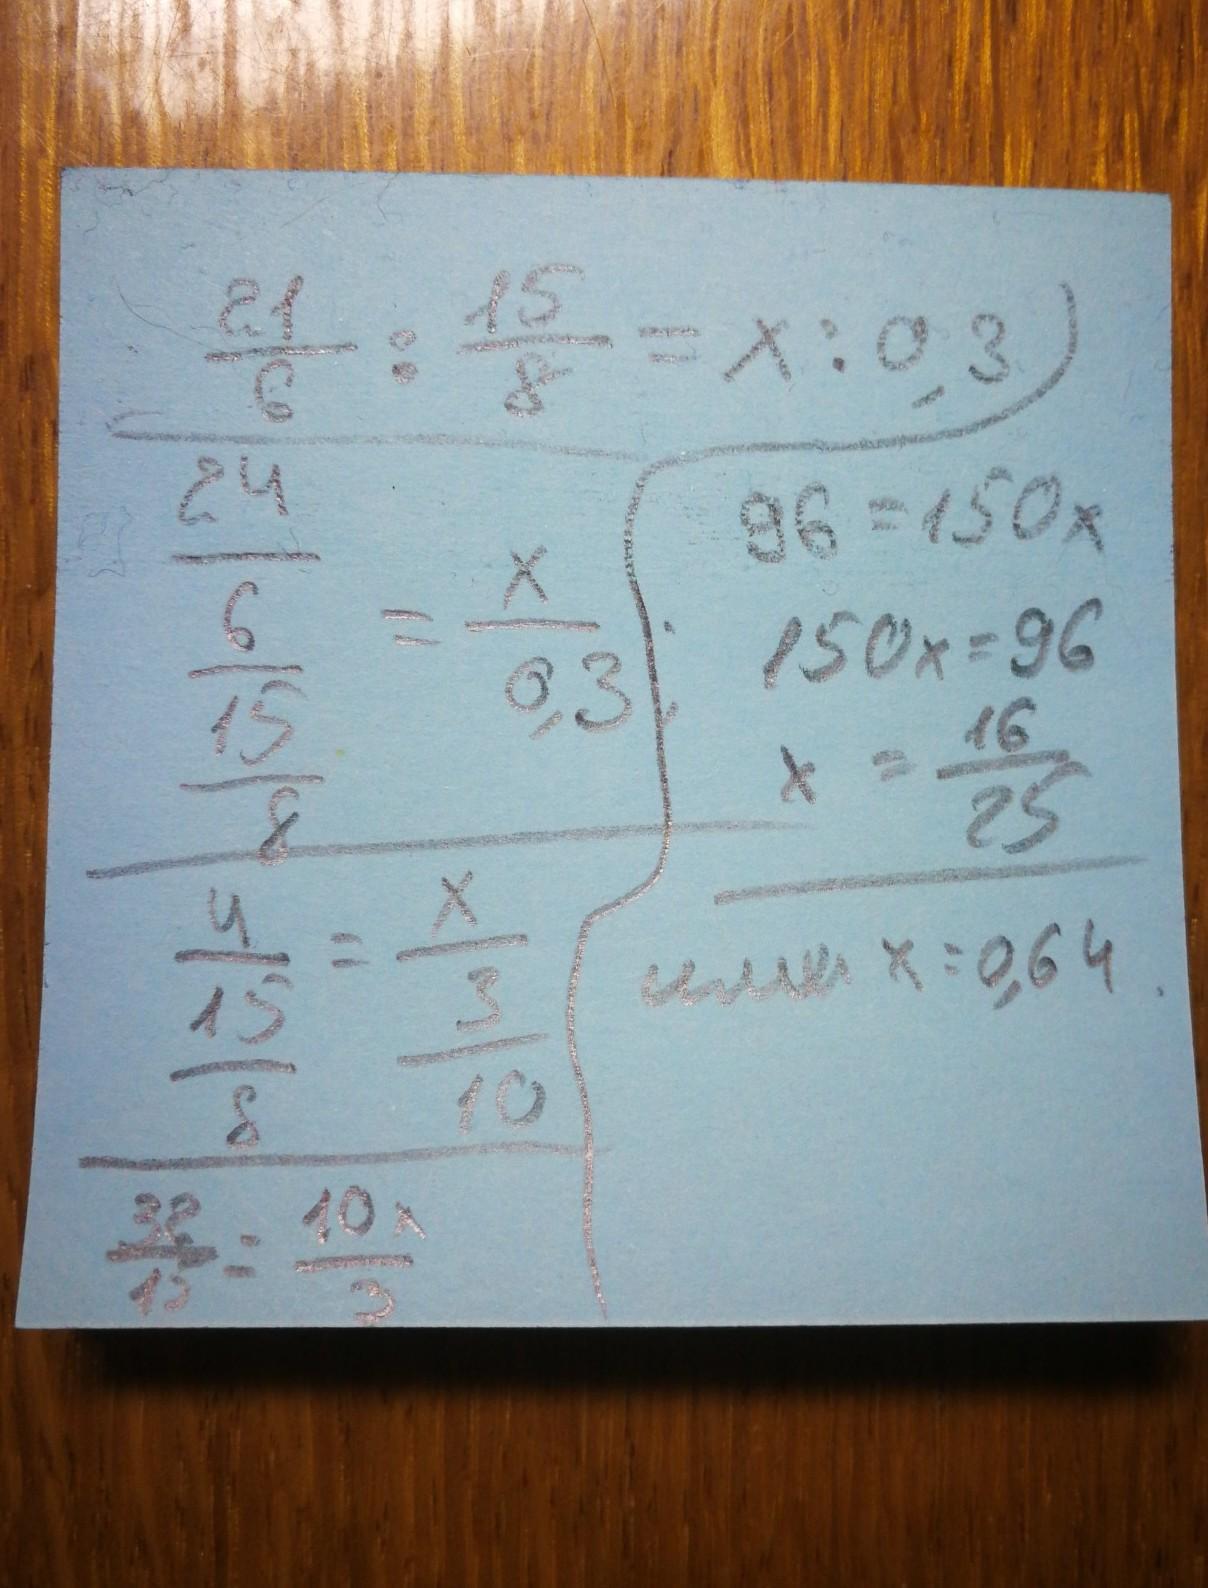 21/6 : 15/8 = x : 0,3
24/6/15/8 = x/0,3
4/15/8 = x/3/10
32/15 = 10x/3
96 = 150x
150x = 96
x = 16/25
x = 0,64